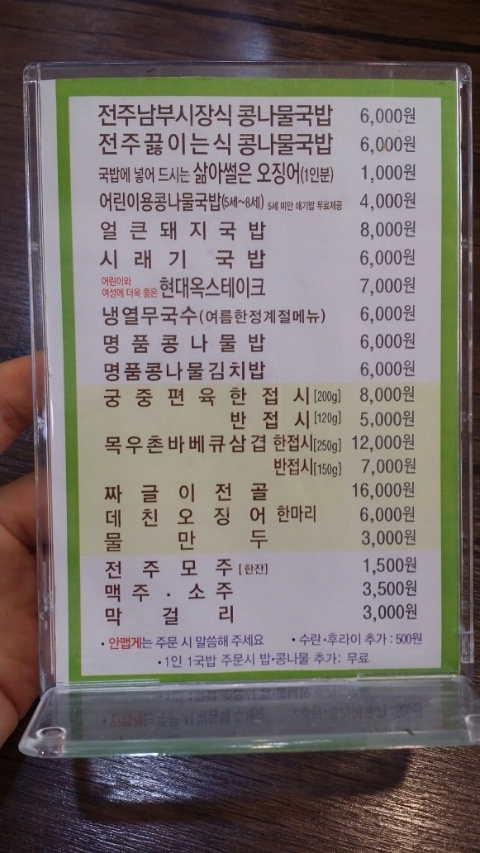 전주남부시장식 콩나물국밥 6,000원
전주끓이는식 콩나물국밥 6,000원
국밥에 넣어 드시는 삶아썰은 오징어(1인분) 1,000원
어린이용콩나물국밥(5세~8세) 5세 미만 애기밥 무료제공 4,000원
얼큰돼지국밥 8,000원
시래기 국밥 6,000원
어린이와
여성에 더욱 좋은 현대옥스테이크 7,000원
냉열무국수(여름한정계절메뉴) 6,000원
명품콩나물밥 6,000원
명품콩나물김치밥 6,000원
궁중편육한접시[200g] 8,000원
반접시[120g] 5,000원
목우촌바베큐삼겹 한접시[250g] 12,000원
반접시[150g] 7,000원
짜글이전골 16,000원
데친오징어 한마리 6,000원
물만두 3,000원
전주모주[한잔] 1,500원
맥주·소주 3,500원
막걸리 3,000원
·안맵게는 주문 시 말씀해 주세요 ·수란·후라이 추가 : 500원
·1인 1국밥 주문시 밥·콩나물 추가: 무료